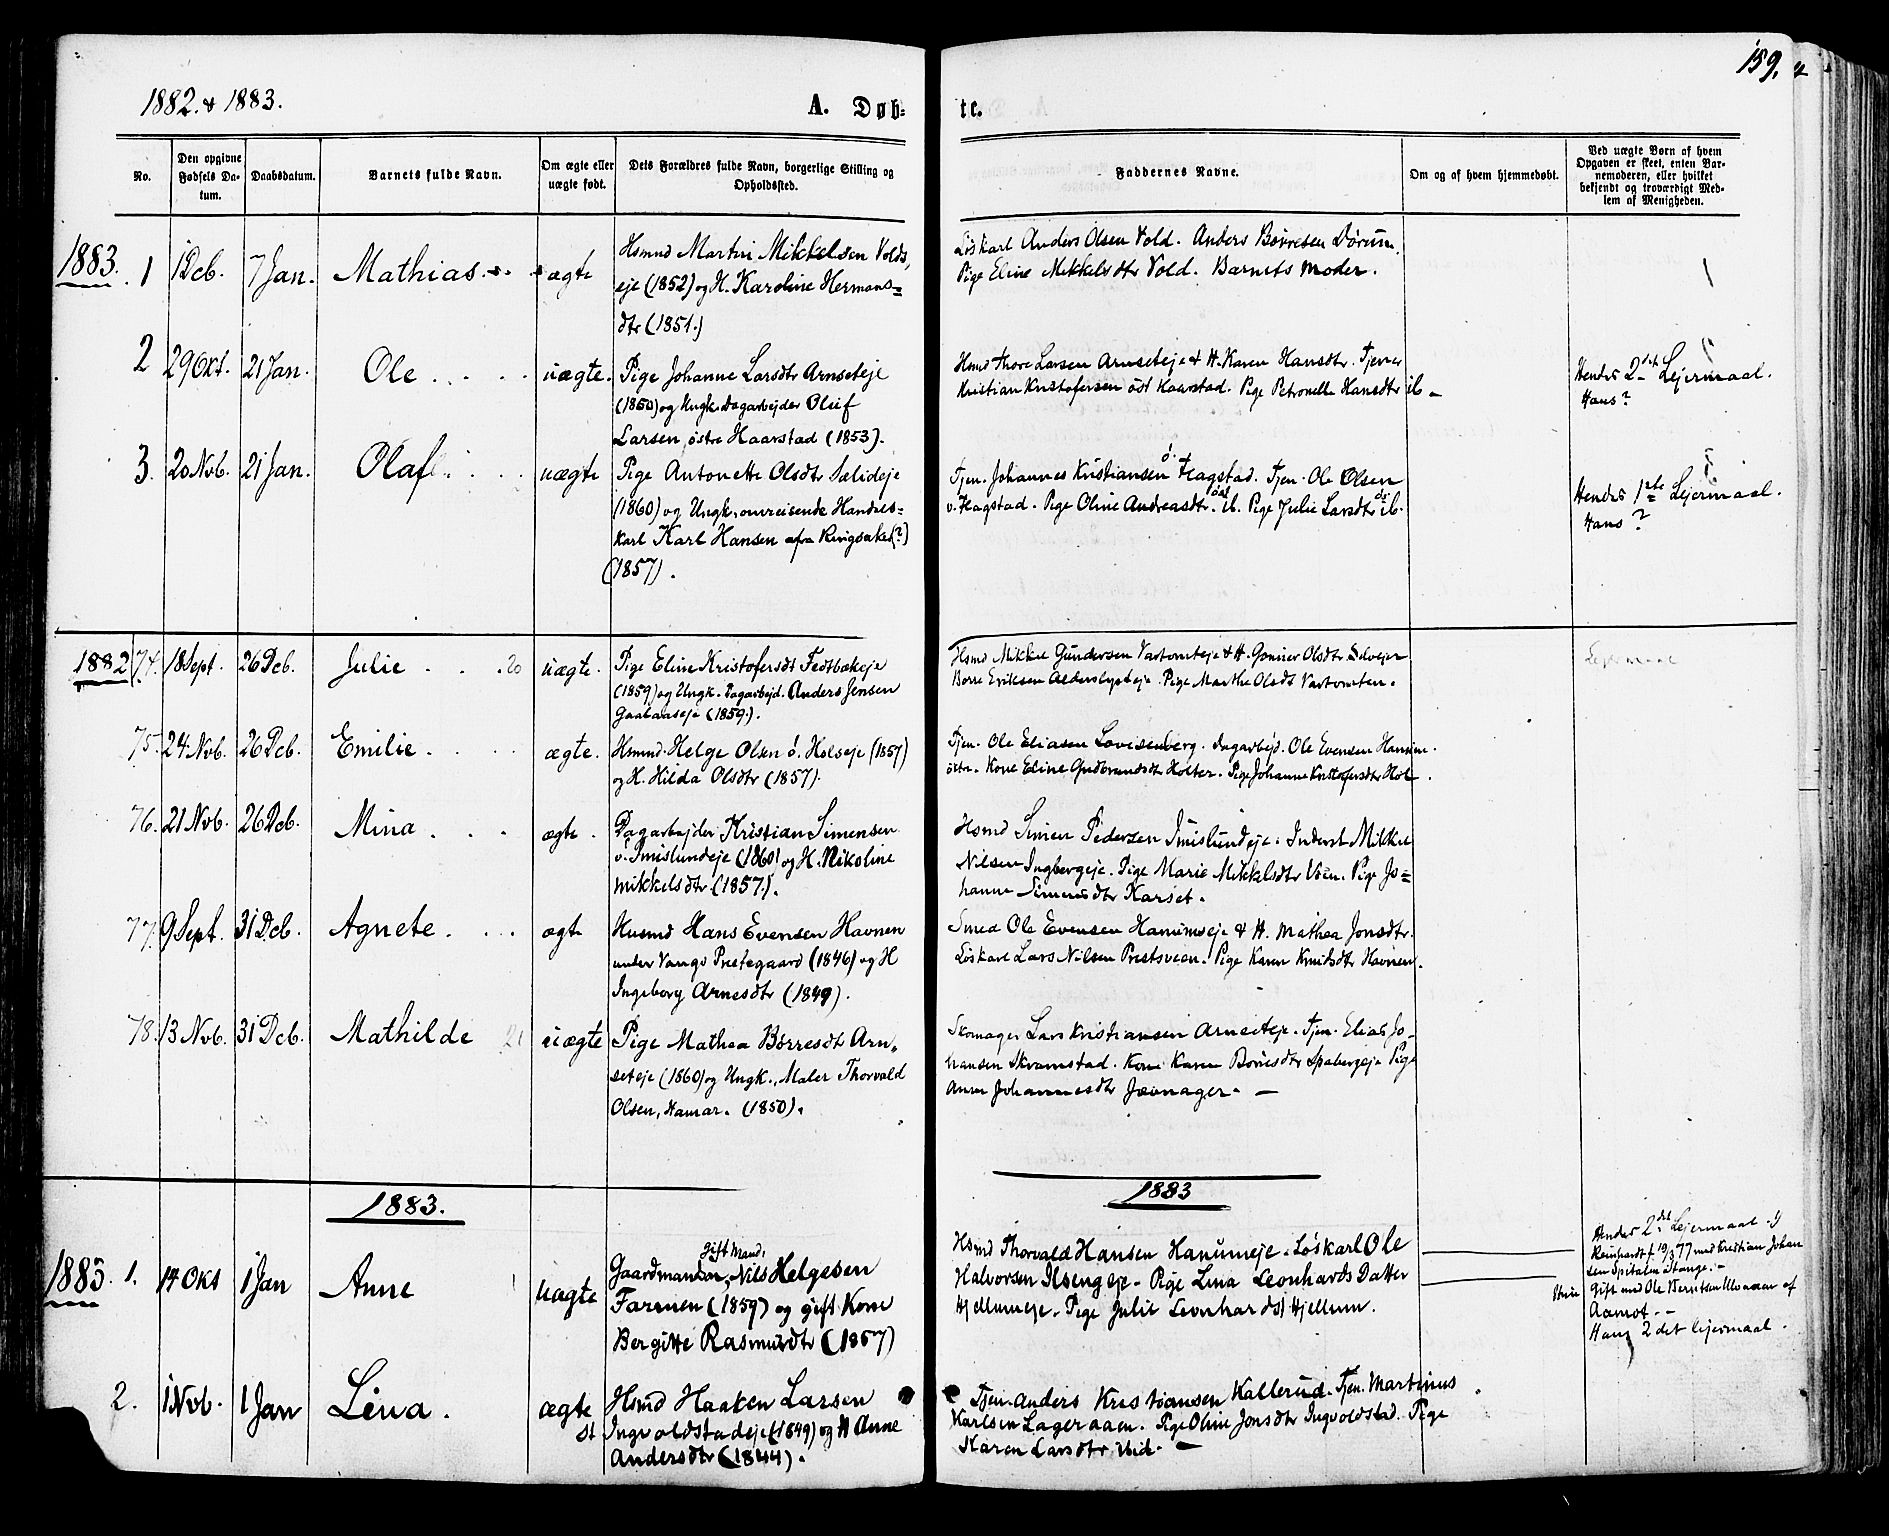 159.
1882 & 1883.
A. Døb-
te.
No.
Den opgivne Fødsels Da-
tum.
Daabsdatum.
Barnets fulde Navn.
Om ægte eller
uægte født.
Dets Forældres fulde Navn, borgerlige Stilling og
Opholdssted.
Faddernes Navne.
Om og af hvem hjemmedøbt.
Ved uægte Børn af hvem
Opgaven er skeet, enten Bar-
nemoderen, eller hvilket
bekjendt og troværdigt Med-
lem af Menigheden.
1883. 1 1 Dcb. 7 Jan. Mathias ægte
Hsmnd Martin Mikkelsen Volds
eje (1852) og H. Karoline Hermans=
dtr (1851.)
Løskarl Anders Olsen Vold. Anders Børresen Dørum.
Pige Eline Mikkelsdtr Vold. Barnets Moder.
2 29 Okt. 21 Jan. Ole uægte.
Pige Johanne Larsdtr Arnseteje
(1850) og Ungk. Dagarbejder Oluf
Larsen, østre Haarstad (1853).
Hsmd Thore Larsen Arnseteje & H. Karen Hansdtr. Tjener
Kristian Kristofersen øst Haarstad. Pige Petronelle Hansdtr ib
Hendes 2det Lejermaal.
Hans?
3. 20 Nob. 21 Jan. Olaf uægte
Pige Antonette Olsdtr Sælideje
(1860) og Ungk. omreisende Handels=
karl Karl Hansen fra Ringsaker (?)
(1857).
Tjen. Johannes Kristiansen ø. Flagstad. Tjen. Ole Olsen
v. Flagstad. Pige Oline Andreasdtr. ib. Pige Julie Larsdtr ib.
Hendes 1ste Lejermaal.
Hans?
1882 74. 18 Sept. 26 Dcb. Julie 20 uægte.
Pige Eline Kristofersdt Fedtbakeje
(1859) og Ungk. Dagarbejd. Anders Jensen
Gaalaaseje (1859.).
Hsmd Mikkel Gundersen Vartomteje & H. Gunner Olsdtr
Børre Eriksen Alderslysteje. Pige Marthe Olsdt Vartomten.
Lejermaal
75. 24. Nob. 26 Dcb. Emilie ægte.
Hsmnd. Helge Olsen ø. Holseje (1857)
og H. Hilda Olsdtr (1857).
Tjen. Ole Eliasen Lovisenberg. Dagarbejd. Ole Evensen
østre. Kone Eline Gudbrandsdtr Holter. Pige Johanne Kristofersdtr Hol
76. 21 Nob. 26 Dcb. Mina ægte.
Dagarbejder Kristian Simensen
v. Imislundeje (1860) og H. Nikoline
Mikkelsdtr (1857).
Hsmd Simen Pedersen Imislundeje. Inderst Mikkel
Nilsen Ingbergeje. Pige Marie Mikkelsdtr Vien. Pige Jo=
hanne Simensdtr Karset.
77. 9 Sept. 31 Dcb. Agnete ægte
Husmd Hans Evensen Havnen
under Vangs Prestegaard (1846) og H
Ingeborg Arnesdtr (1849).
Smed Ole Evensen Hanumseje & H. Mathea Jonsdtr.
Løskarl Lars Nilsen Prestsveen. Pige Karen Knudsdtr Havnen.
78. 13 Nob. 31 Dcb. Mathilde 21 uægte
Pige Mathea Børresdt Arn=
seteje (1860) og Ungk., Maler Thorvald
Olsen, Hamar. (1850).
Skomager Lars Kristiansen Arnseteje. Tjen. Elias Jo-
hansen Skramstad. Kone Karen Børresdtr Spabergeje Pige
Anne Johannesdtr Jevnager.
1883.
1883
1883. 1. 14 Okt 1 Jan Anne uægte
gift Mand,
Gaardmandsøn, Nils Helgesen
Farmen (1859) og gift Kone
Bergitte Rasmusdtr (1857)
Hsmd Thorvald Hansen Hanumeje. Løskarl Ole
Halvorsen Ilsengeje. Pige Lina Leonhards Datter
Hjellumeje. Pige Julie Leonhardsdt Hjellum.
Hendes 2det Lejermaal.
19/3 77 med Kristian Johan
sen Spitalen Stange.
Gift med Ole Berntsen af
Aamot.
Hans 2det lejermaal.
2. 1 Nob. 1 Jan Lina. ægte
Hsmd Haaken Larsen
Ingvoldstadeje (1849) og H Anne
Andersdtr (1844).
Tjen. Anders Kristiansen Kallerud. Tjen. Martinus
Karlsen Lageraaen. Pige Oline Jonsdtr Ingvoldstad. Pige
Karen Larsdtr ibid.